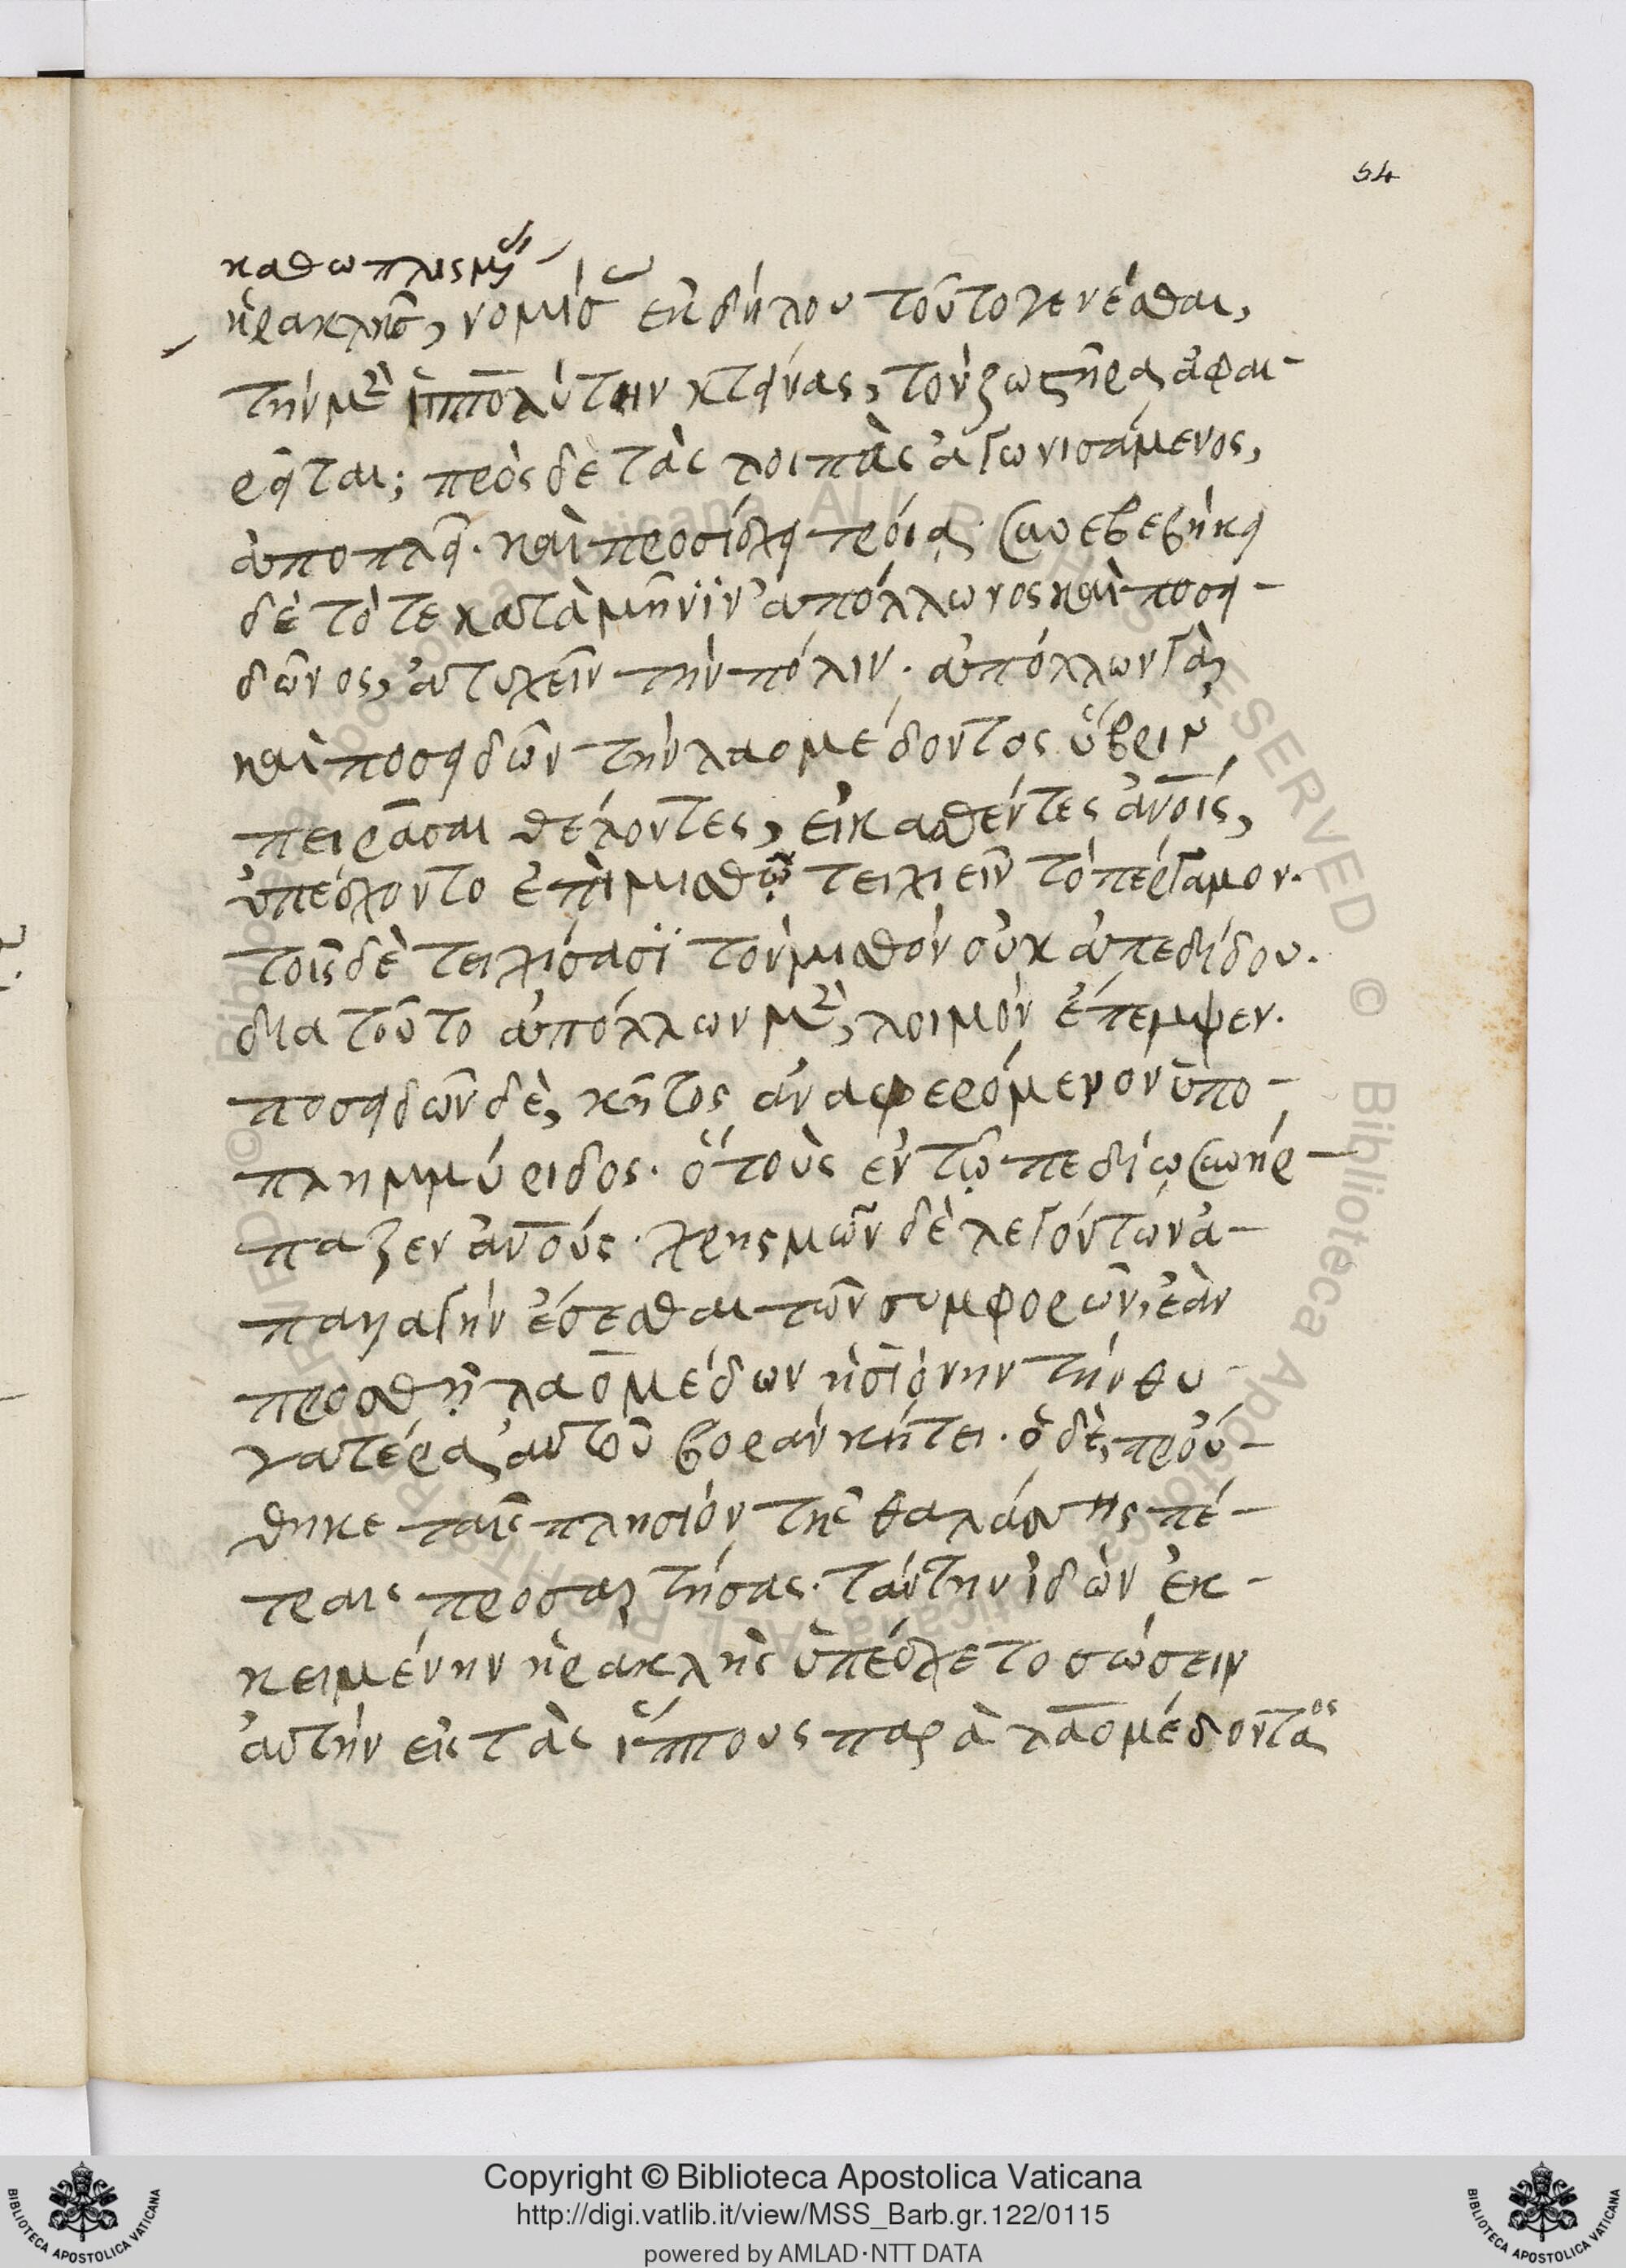 54
καθωπλισμ
ἡρακλῆς, νομίσ ἐκ δήλου τοῦτο γενέσθαι,
τὴν μὲν ἱππολύτην κτείνας, τὸν ζωστῆρα ἀφαι-
ρεῖται; πρὸς δὲ τὰς λοιπὰς ἀγωνισάμενος,
ἀποπλεῖ. καὶ προσίσχει τροία. συνεβεβήκει
δὲ τότε κατὰ μῆνϊν ἀπόλλωνος καὶ ποσει-
δῶνος, ἀτυχεῖν τὴν πόλιν. ἀπόλλων γὰρ
καὶ ποσειδῶν τὴν λαομέδοντος ὕβριν
πειρᾶσαι θέλοντες, εἰκασθέντες ἀνοῖς,
ὑπέσχοντο ἐπὶ μισθῷ τειχιεῖν τὸ πέργαμον.
τοῖς δὲ τειχίσασϊ τὸν μισθὸν οὐκ ἀπεδίδου.
διατοῦτο ἀπόλλων μὲν, λοιμὸν ἔπεμψεν.
ποσειδῶν δὲ, κῆτος ἀναφερόμενον ὑπο-
πλημμύριδος. ὃ τοὺς ἐν τῷ πεδίω συνήρ-
παζεν ἀνους. χρησμῶν δὲ λεγόντων ἀ-
παλλαγὴν ἔσεσθαι τῶν συμφορῶν, ἐὰν
προσθῇ λαομέδων ἡσϊόνην τὴν θυ-
γατέρα αὐτοῦ βορὰν κήτει. ὁ δὲ, πρού-
θηκε ταῖς πλησίον τῆς θαλάσσης πέ-
τραις προσαρτήσας. ταύτην ἰδὼν ἐκ-
κειμένην ἡρακλῆς ὑπέσχετο σώσειν
αὐτὴν εἰ τὰς ἵππους παρὰ λαομέδοντος
Copyright © Biblioteca Apostolica Vaticana
http://digi.vatlib.it/view/MSS_Barb.gr.122/0115
powered by AMLAD·NTT DATA
BIBLIOTECA APOSTOLICA VATICANA
BIBLIOTECA APOSTOLICA VATICANA